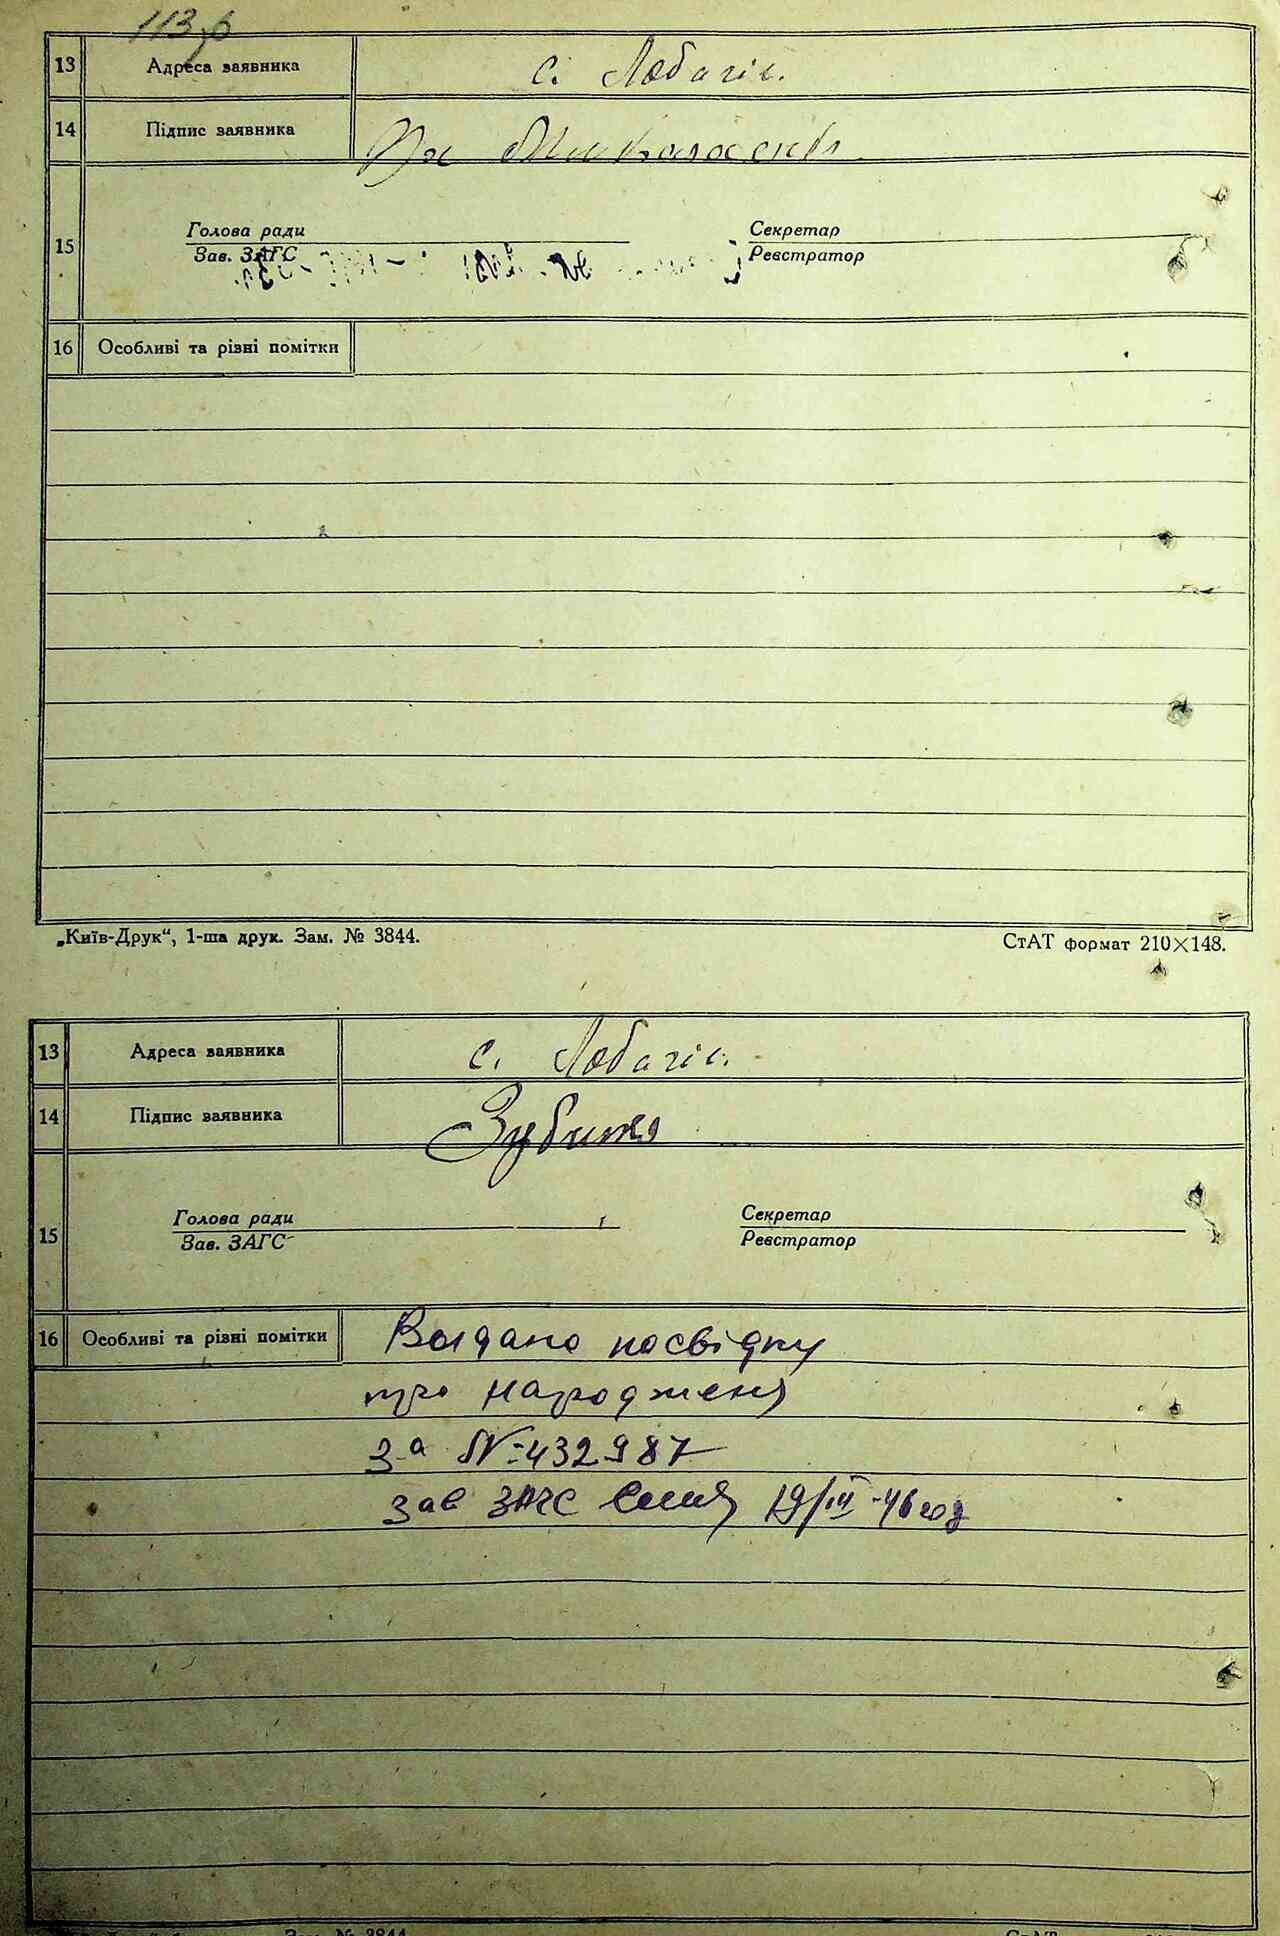 13 Адреса заявника с. Лобачів.
14 Підпис заявника
15 Голова ради Секретар
Зав. ЗАГС Реєстратор
16 Особливі та різні помітки
„Київ-Друк“, 1-ша друк. Зам. № 3844. СтАТ формат 210×148.
13 Адреса заявника с. Лобачів.
14 Підпис заявника
15 Голова ради Секретар
Зав. ЗАГС Реєстратор
16 Особливі та різні помітки Выдано посвідку
про народженя
за № 432987
зав ЗАГС 19/III-46 год
Зам. № 3844 СтАТ